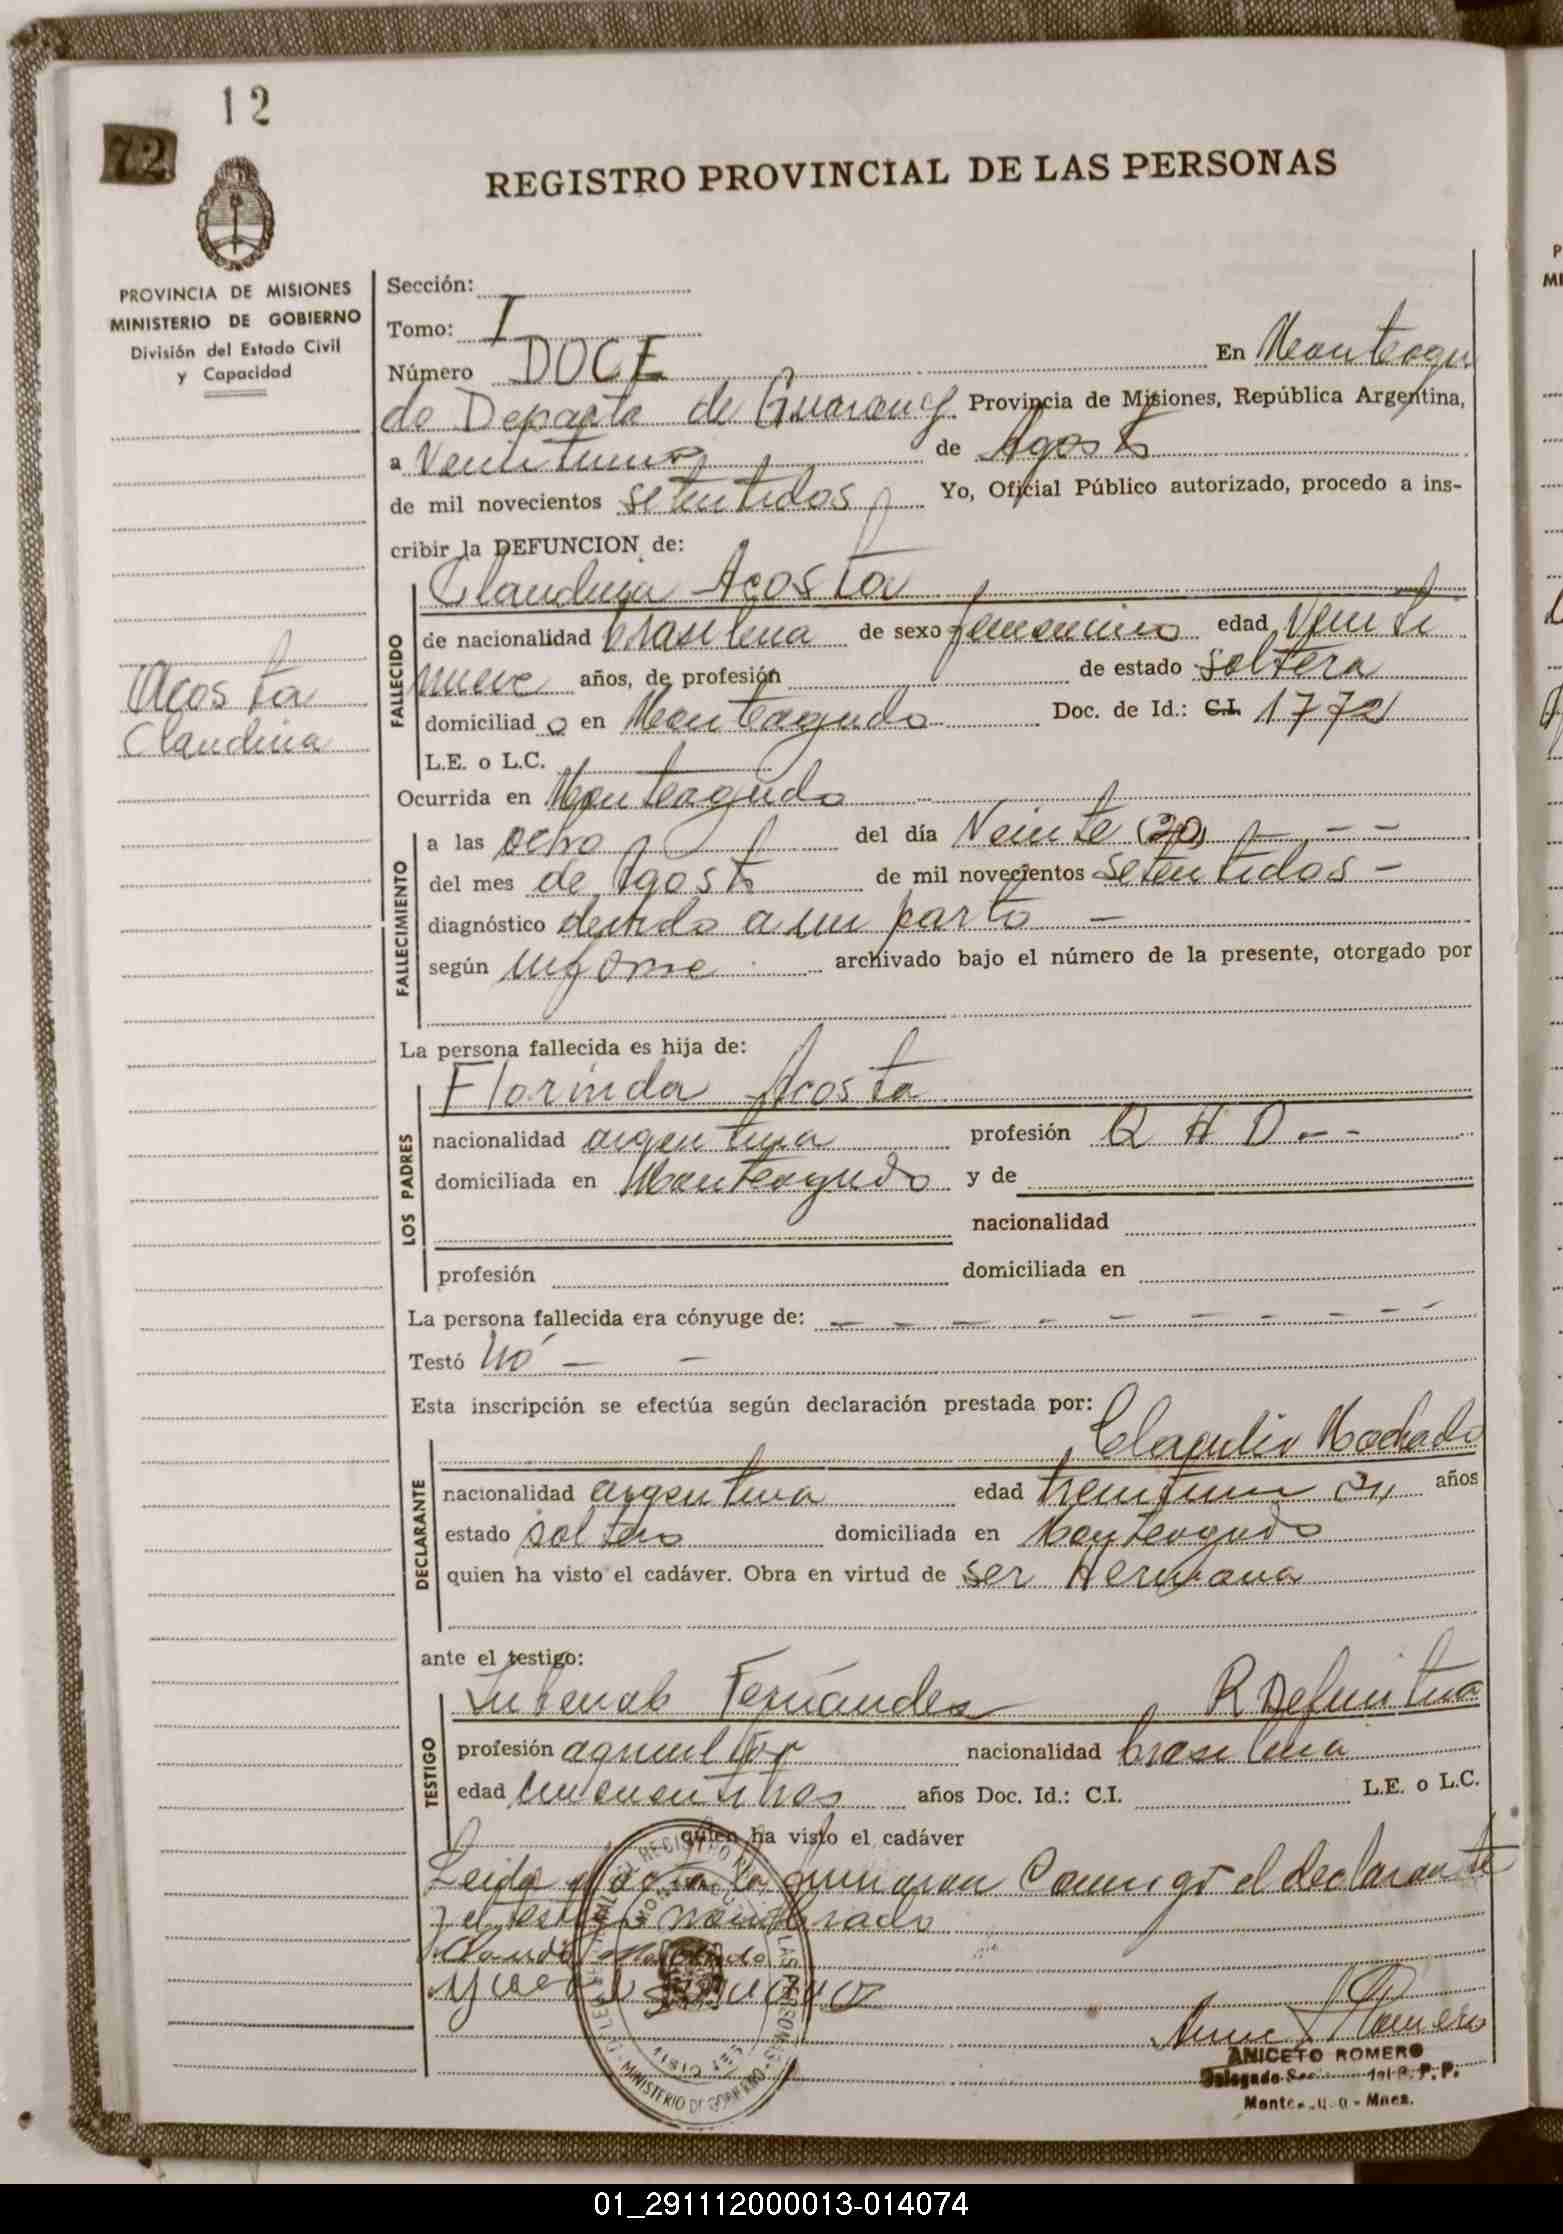 12
72
REGISTRO PROVINCIAL DE LAS PERSONAS
PROVINCIA DE MISIONES
MINISTERIO DE GOBIERNO
División del Estado Civil
y Capacidad
Acosta
Claudina
Sección:
Tomo: I
Número DOCE En Monteagu
do Departo de Guarany Provincia de Misiones, República Argentina,
a Veintiuno de Agosto
de mil novecientos setentidos Yo, Oficial Público autorizado, procedo a ins-
cribir la DEFUNCION de:
Claudina Acosta
FALLECIDO
de nacionalidad brasilena de sexo femenino edad Veinti
nueve años, de profesión de estado soltera
domiciliad o en Monteagudo Doc. de Id.: C.I. 1772
L.E. o L.C.
Ocurrida en Monteagudo
FALLECIMIENTO
a las ocho del día Veinte (20) - - -
del mes de Agosto de mil novecientos setentidos -
diagnóstico devido a un parto -
según informe archivado bajo el número de la presente, otorgado por
La persona fallecida es hija de:
LOS PADRES
Florinda Acosta
nacionalidad argentina profesión Q H D - -
domiciliada en Monteagudo y de
nacionalidad
profesión domiciliada en
La persona fallecida era cónyuge de: - - - - - - - - -
Testó no - -
Esta inscripción se efectúa según declaración prestada por:
DECLARANTE
Machado
nacionalidad argentina edad treintiun años
estado soltero domiciliada en Monteagudo
quien ha visto el cadáver. Obra en virtud de ser Hermana
ante el testigo:
TESTIGO
Fernandez R Definitiva
profesión agricultor nacionalidad brasilena
edad cincuentitres años Doc. Id.: C.I. L.E. o L.C.
quien ha visto el cadáver
Leida el acta la firmaran Conmigo el declarante
y el testigo nombrado
Machado
MINISTERIO DE GOBIERNO
Romero
ANICETO ROMERO
Delegado
01_291112000013-014074